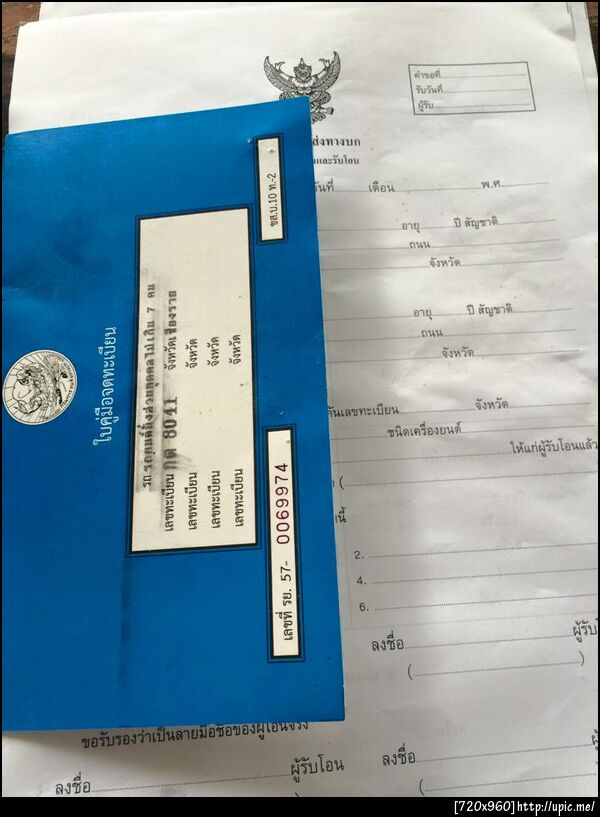 ใบคู่มือจดทะเบียน
ขส.บ.10 ท.-2
รถ รถยนต์นั่งส่วนบุคคลไม่เกิน 7 คน
เลขทะเบียน กต 8041 จังหวัดเชียงราย
เลขทะเบียน จังหวัด
เลขทะเบียน จังหวัด
เลขทะเบียน จังหวัด
เลขที่ รย. 57- 0069974
คำขอที่
รับวันที่
ผู้รับ
ส่งทางบก
และรับโอน
วันที่ เดือน พ.ศ.
อายุ ปี สัญชาติ
ถนน
จังหวัด
อายุ ปี สัญชาติ
ถนน
จังหวัด
เลขทะเบียน จังหวัด
ชนิดเครื่องยนต์
ให้แก่ผู้รับโอนแล้ว
(
นี้
2.
4.
6.
ลงชื่อ ผู้รับ
( )
ขอรับรองว่าเป็นลายมือชื่อของผู้โอนจริง
ลงชื่อ ผู้รับโอน ลงชื่อ
(
[720x960]http://upic.me/